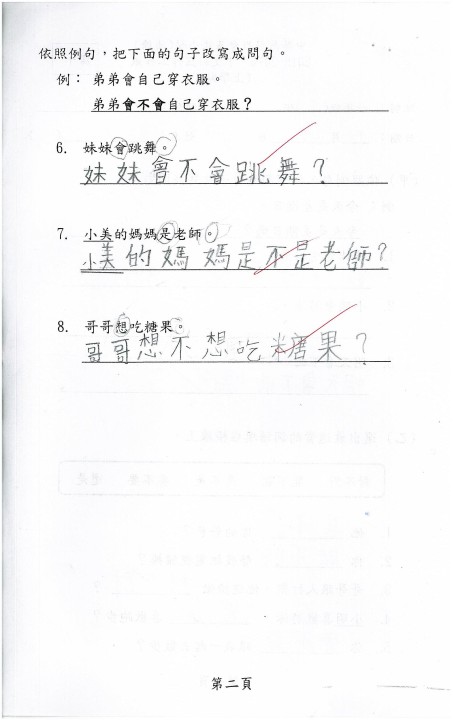 依照例句，把下面的句子改寫成問句。
例： 弟弟會自己穿衣服。
弟弟會不會自己穿衣服？
6. 妹妹會跳舞。
妹妹會不會跳舞？
7. 小美的媽媽是老師。
小美的媽媽是不是老師？
8. 哥哥想吃糖果。
哥哥想不想吃糖果？
第二頁